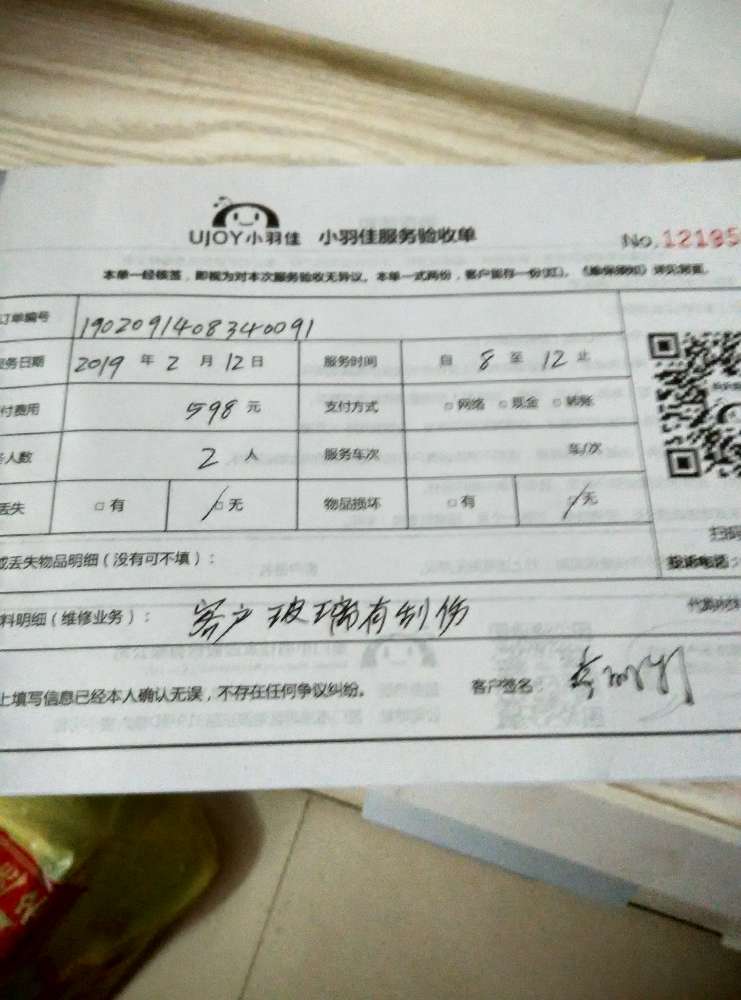 UJOY小羽佳 小羽佳服务验收单
No.12195
本单一经核签，即视为对本次服务验收无异议。本单一式两份，客户留存一份(红)。
订单编号 1902091408340091
服务日期 2019 年 2 月 12 日 服务时间 自 8 至 12 止
付费用 598 元 支付方式 □ 网络 □ 现金 □ 转账
务人数 2 人 服务车次 车/次
丢失 □ 有 □ 无 物品损坏 □ 有 □ 无
或丢失物品明细（没有可不填）：
扫码
投诉电话：
料明细（维修业务）： 客户玻璃有刮伤
上填写信息已经本人确认无误，不存在任何争议纠纷。 客户签名：